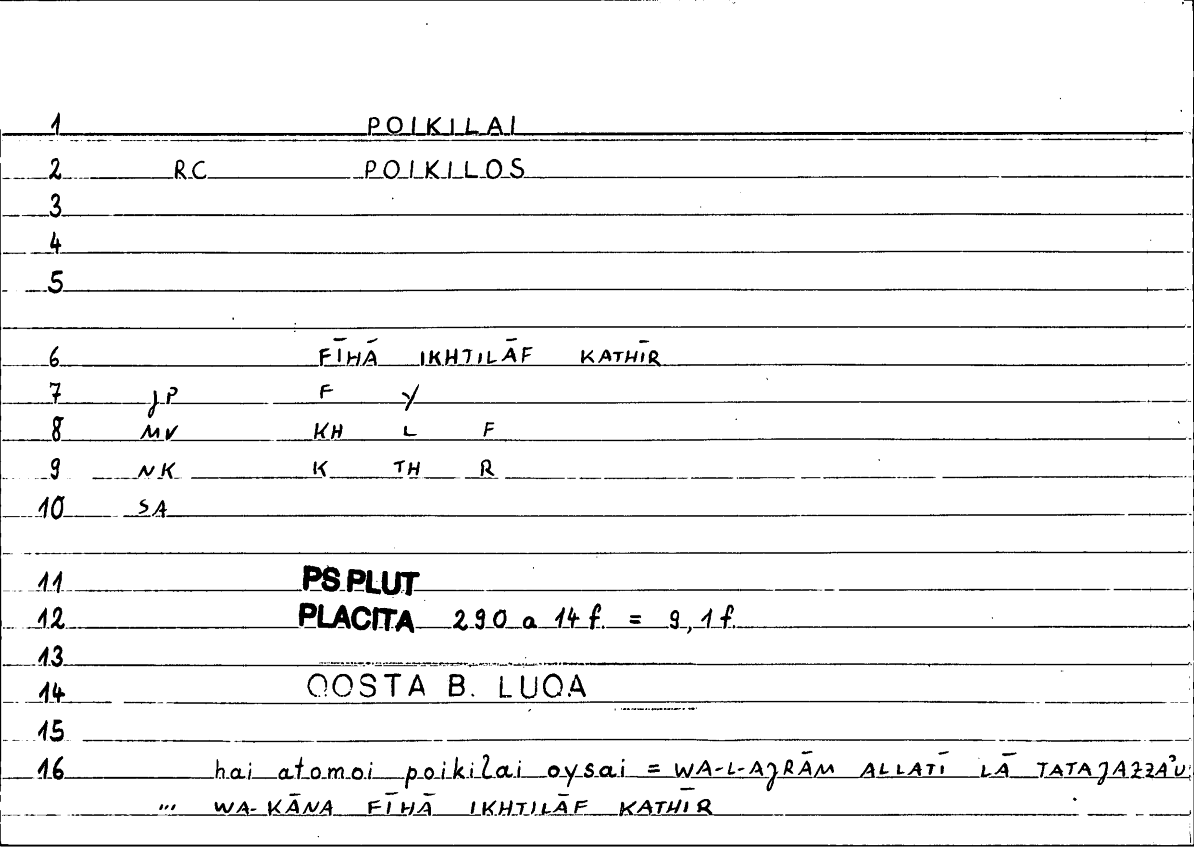 1 POIKILAI
2 RC POIKILOS
3
4
5
6 FĪHĀ IKHTILĀF KATHĪR
7 JP F Y
8 MV KH L F
9 NK K TH R
10 SA
11 PS.PLUT
12 PLACITA 290 a 14 f. = 9,1 f.
13
14 QOSTA B. LUQA
15
16 hai atomoi poikilai oysai = WA-L-AJRĀM ALLATĪ LĀ TATAJAZZAʾU
... WA-KĀNA FĪHĀ IKHTILĀF KATHĪR